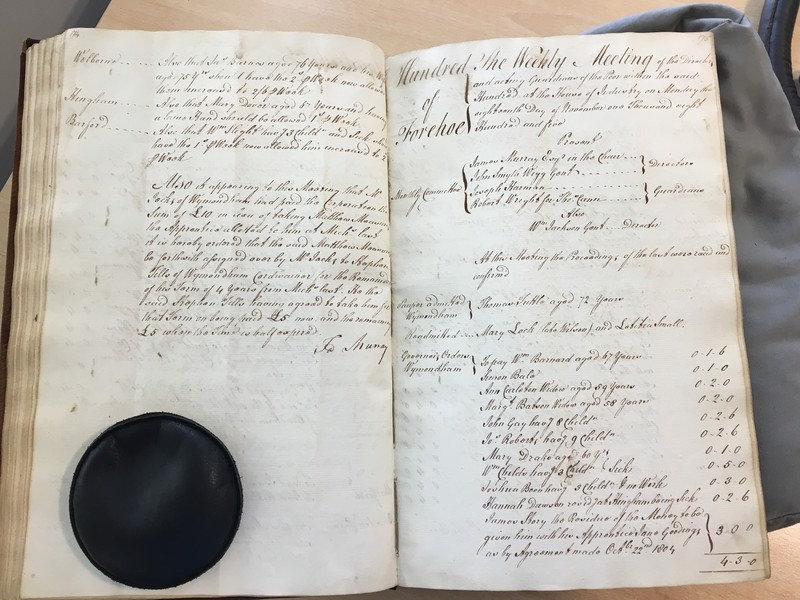 174
Welborne Also that Jas. Barnes aged 76 Years and his Wife
aged 75 Yrs. should have the 2s. p Week now allowed
them increased to 2/6 p Week
Hingham Also that Mary Dover aged 5 Years and having
a lame Hand should be allowed 1s. p Week
Barford Also that Wm. Slight havg. 3 Childn. and Sick should
have the 1s. p Week now allowed him increased to 2
p Week
Also it appearing to this Meeting that Mr.
Jacks of Wymondham had paid the Corporation the
Sum of £10 in lieu of taking Matthew
the Apprentice allotted to him at Michs. last
it is hereby ordered that the said Matthew
be forthwith assigned over by Mr. Jacks to Stephen
Tills of Wymondham Cordwainer for the Remainder
of his Term of 4 Years from Michs. last. He the
said Stephen Tills having agreed to take him for
that Term on being paid £5 now and the remaining
£5 when the Time is half expired
Js. Murray
175
Hundred of Forehoe
The Weekly Meeting of the Directors
and acting Guardians of the Poor within the said
Hundred at the House of Industry on Monday the
eighteenth Day of November one Thousand eight
Hundred and five
Present
Monthly Committee
James Murray Esqr. in the Chair
John Smyth Wigg Gent.
Directors
Joseph Harman
Robert Wright for Thos. Cann
Guardians
Also
Wm. Jackson Gent. Director
At this Meeting the Proceedings of the last were read and
confirmd
Pauper admitted Wymondham
Thomas Tuttle aged 72 Years
Readmitted Mary Lock (late Wilson) and Lætitia Small.
Governors Orders Wymondham
To pay Wm. Barnard aged 67 Years 0-1-6
Simon Bale 0-1-0
Ann Carleton Widow aged 59 Years 0-2-0
Margt. Batson Widow aged 58 Years 0-2-0
John Gay havg. 8 Childn. 0-2-6
Jos. Roberts havg. 9 Childn. 0-2-6
Mary Drake aged 60 Yrs. 0-1-0
Wm. Childs havg. 3 Childn. & Sick 0-5-0
Joshua Boon havg. 3 Childn. & no Work 0-3-0
Hannah Dawson resid at Hingham being Sick 0-2-6
James Story the Residue of the Money to be
given him with his Apprentice Jane Goodings
as by Agreement made Octbr. 22nd. 1804 3-0-0
4-3-0